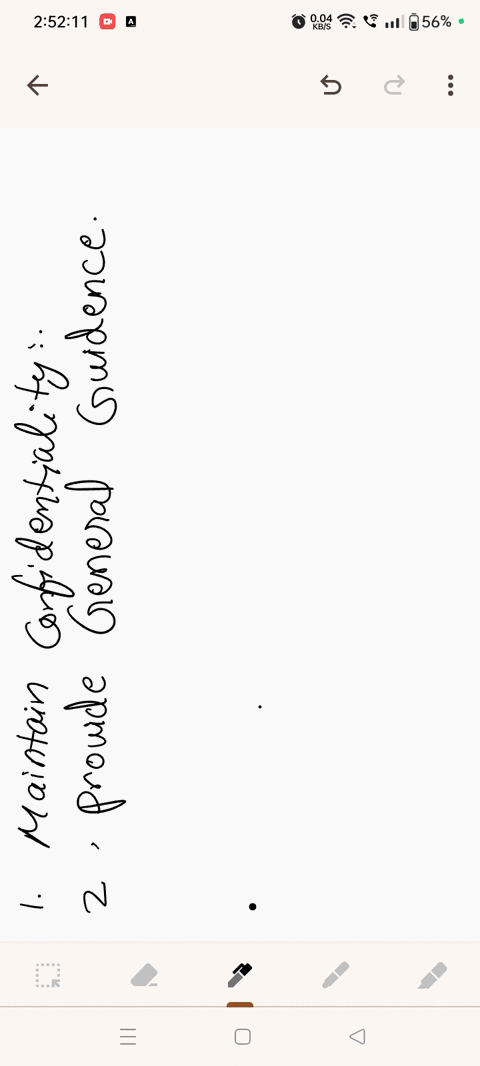 2:52:11
0.04 KB/S
56%
1. Maintain Confidentiality:.
2, Provide General Guidence.